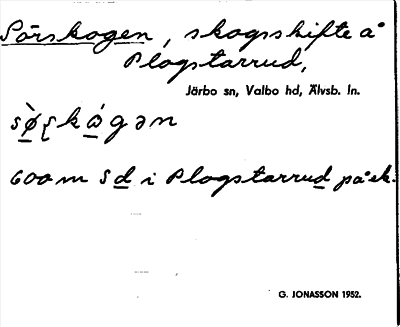 Sörskogen, skogsskifte å
Plogstarrud,
Järbo sn, Valbo hd, Älvsb. ln.
sø̀ʂkɷ́gən
600 m Sd i Plogstarrud på ek.
G. JONASSON 1952.